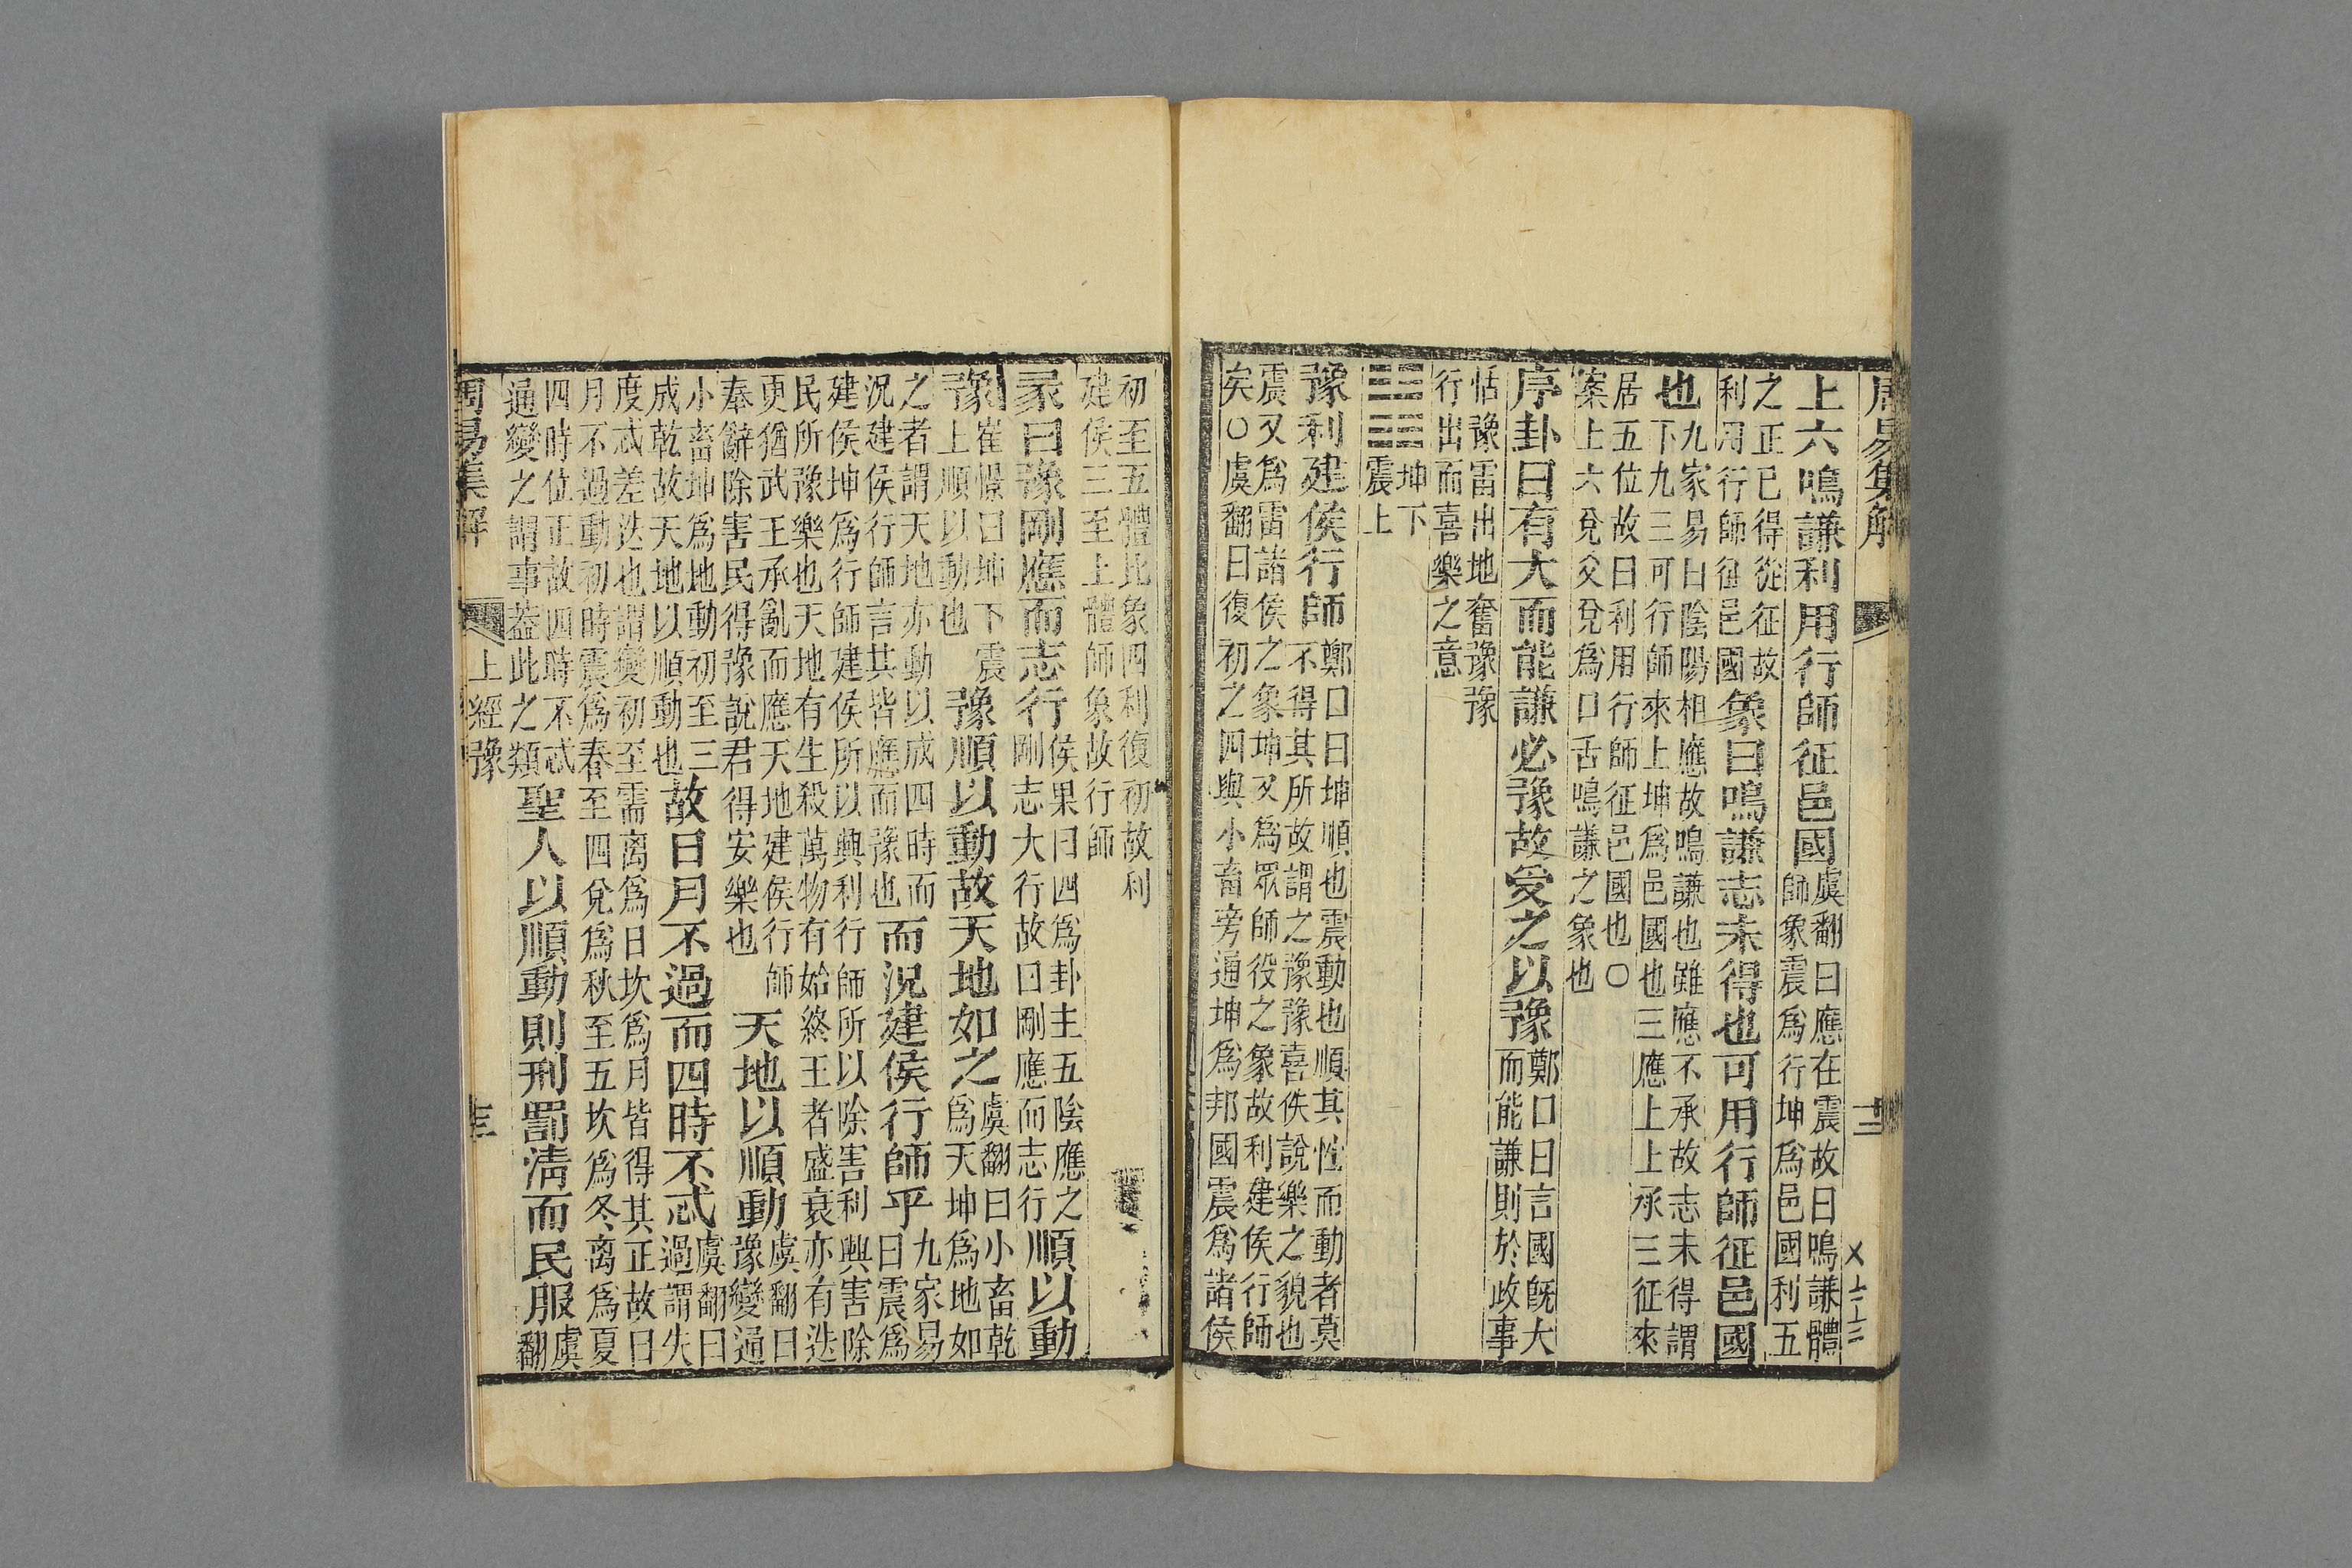 周易集解　十二
上六鳴謙利用行師征邑國虞翻曰應在震故曰鳴謙體師象震爲行坤爲邑國利五
之正已得從征故利用行師征邑國象曰鳴謙志未得也可用行師征邑國
也九家易曰陰陽相應故鳴謙也雖應不承故志未得謂下九三可行師來上坤爲邑國也三應上上承三征來
居五位故曰利用行師征邑國也〇案上六兌爻兌爲口舌鳴謙之象也
序卦曰有大而能謙必豫故受之以豫鄭口曰言國旣大而能謙則於政事
恬豫雷出地奮豫豫行出而喜樂之意
䷏坤下震上
豫利建侯行師鄭口曰坤順也震動也順其性而動者莫不得其所故謂之豫豫喜佚說樂之貌也
震又爲雷諸侯之象坤又爲眾師役之象故利建侯行師矣〇虞翻曰復初之四與小畜旁通坤爲邦國震爲諸侯
初至五體比象四利復初故利建侯三至上體師象故行師
彖曰豫剛應而志行侯果曰四爲卦主五陰應之剛志大行故曰剛應而志行順以動
豫崔憬曰坤下震上順以動也豫順以動故天地如之虞翻曰小畜乾爲天坤爲地如
之者謂天地亦動以成四時而況建侯行師言其皆應而豫也而況建侯行師乎九家易曰震爲
建侯坤爲行師建侯所以興利行師所以除害利興害除民所豫樂也天地有生殺萬物有始終王者盛衰亦有迭
更猶武王承亂而應天地建侯行師奉辭除害民得豫說君得安樂也天地以順動虞翻曰豫變通
小畜坤爲地動初至三成乾故天地以順動也故日月不過而四時不忒虞翻曰過謂失
度忒差迭也謂變初至需离爲日坎爲月皆得其正故曰月不過動初時震爲春至四兌爲秋至五坎爲冬离爲夏
四時位正故四時不忒通變之謂事蓋此之類聖人以順動則刑罰清而民服虞翻
周易集解　上經豫　十三